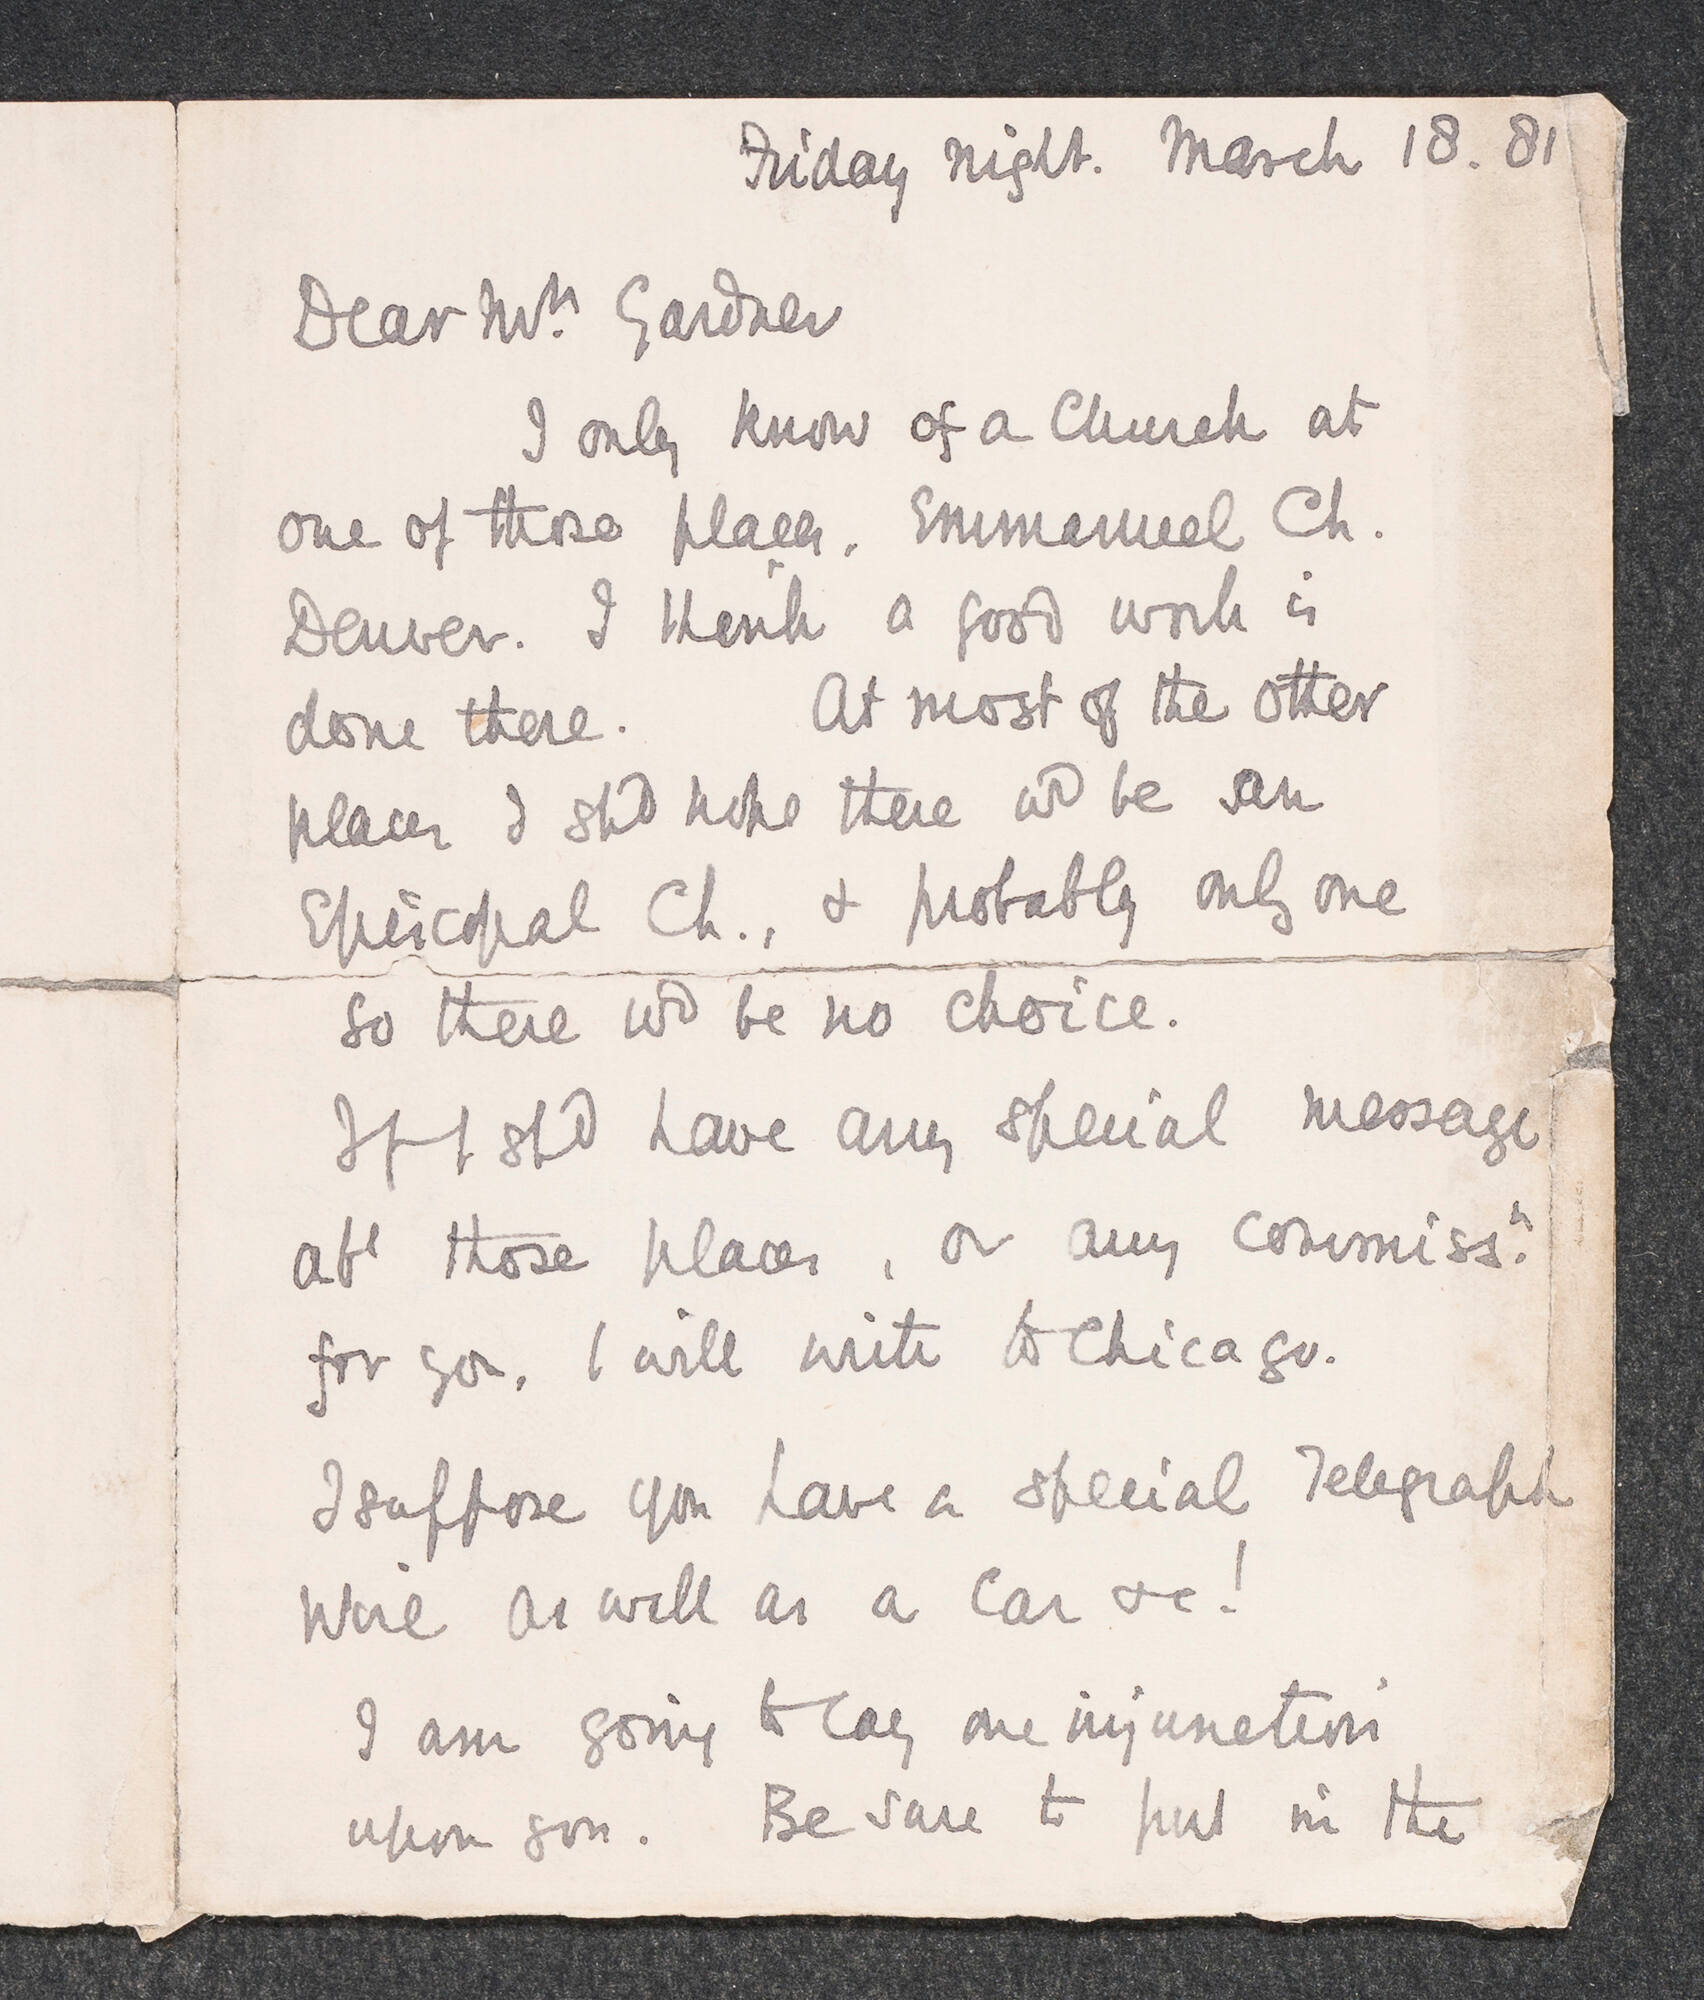 Friday night. March 18. 81
Dear Mrs. Gardner
I only know of a Church at
one of those places. Emmanuel Ch.
Denver. I think a good work is
done there. At most of the other
places I shd hope there wd be an
Episcopal Ch., & probably only one
so there wd be no choice.
If I shd have any special message
abt those places, or any commissn.
for you, I will write to Chicago.
I suppose you have a special Telegraph
Wire as well as a Car &c!
I am going to lay one injunction
upon you. Be sure to put in the